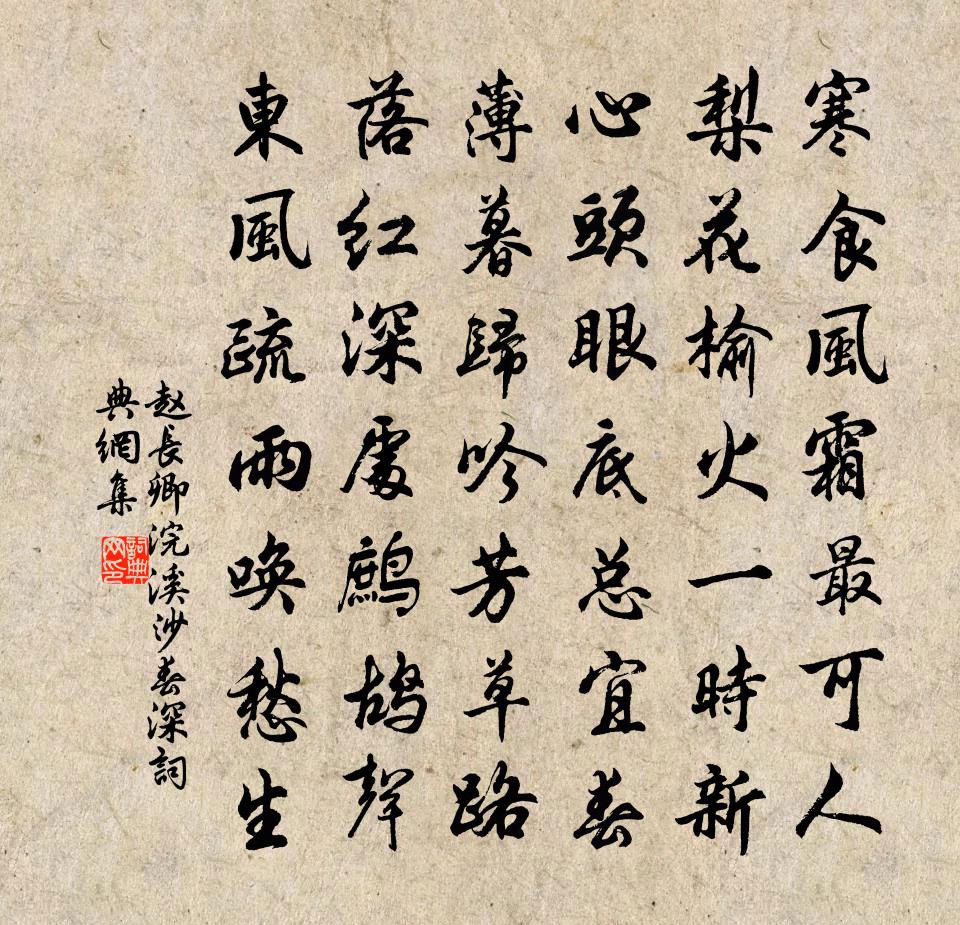 寒食風霜最可人
梨花榆火一時新
心頭眼底总宜春
薄暮歸吟芳草路
落红深處鹧鸪聲
東風疏雨唤愁生
赵長卿浣溪沙春深詞
典網集
詞典網印